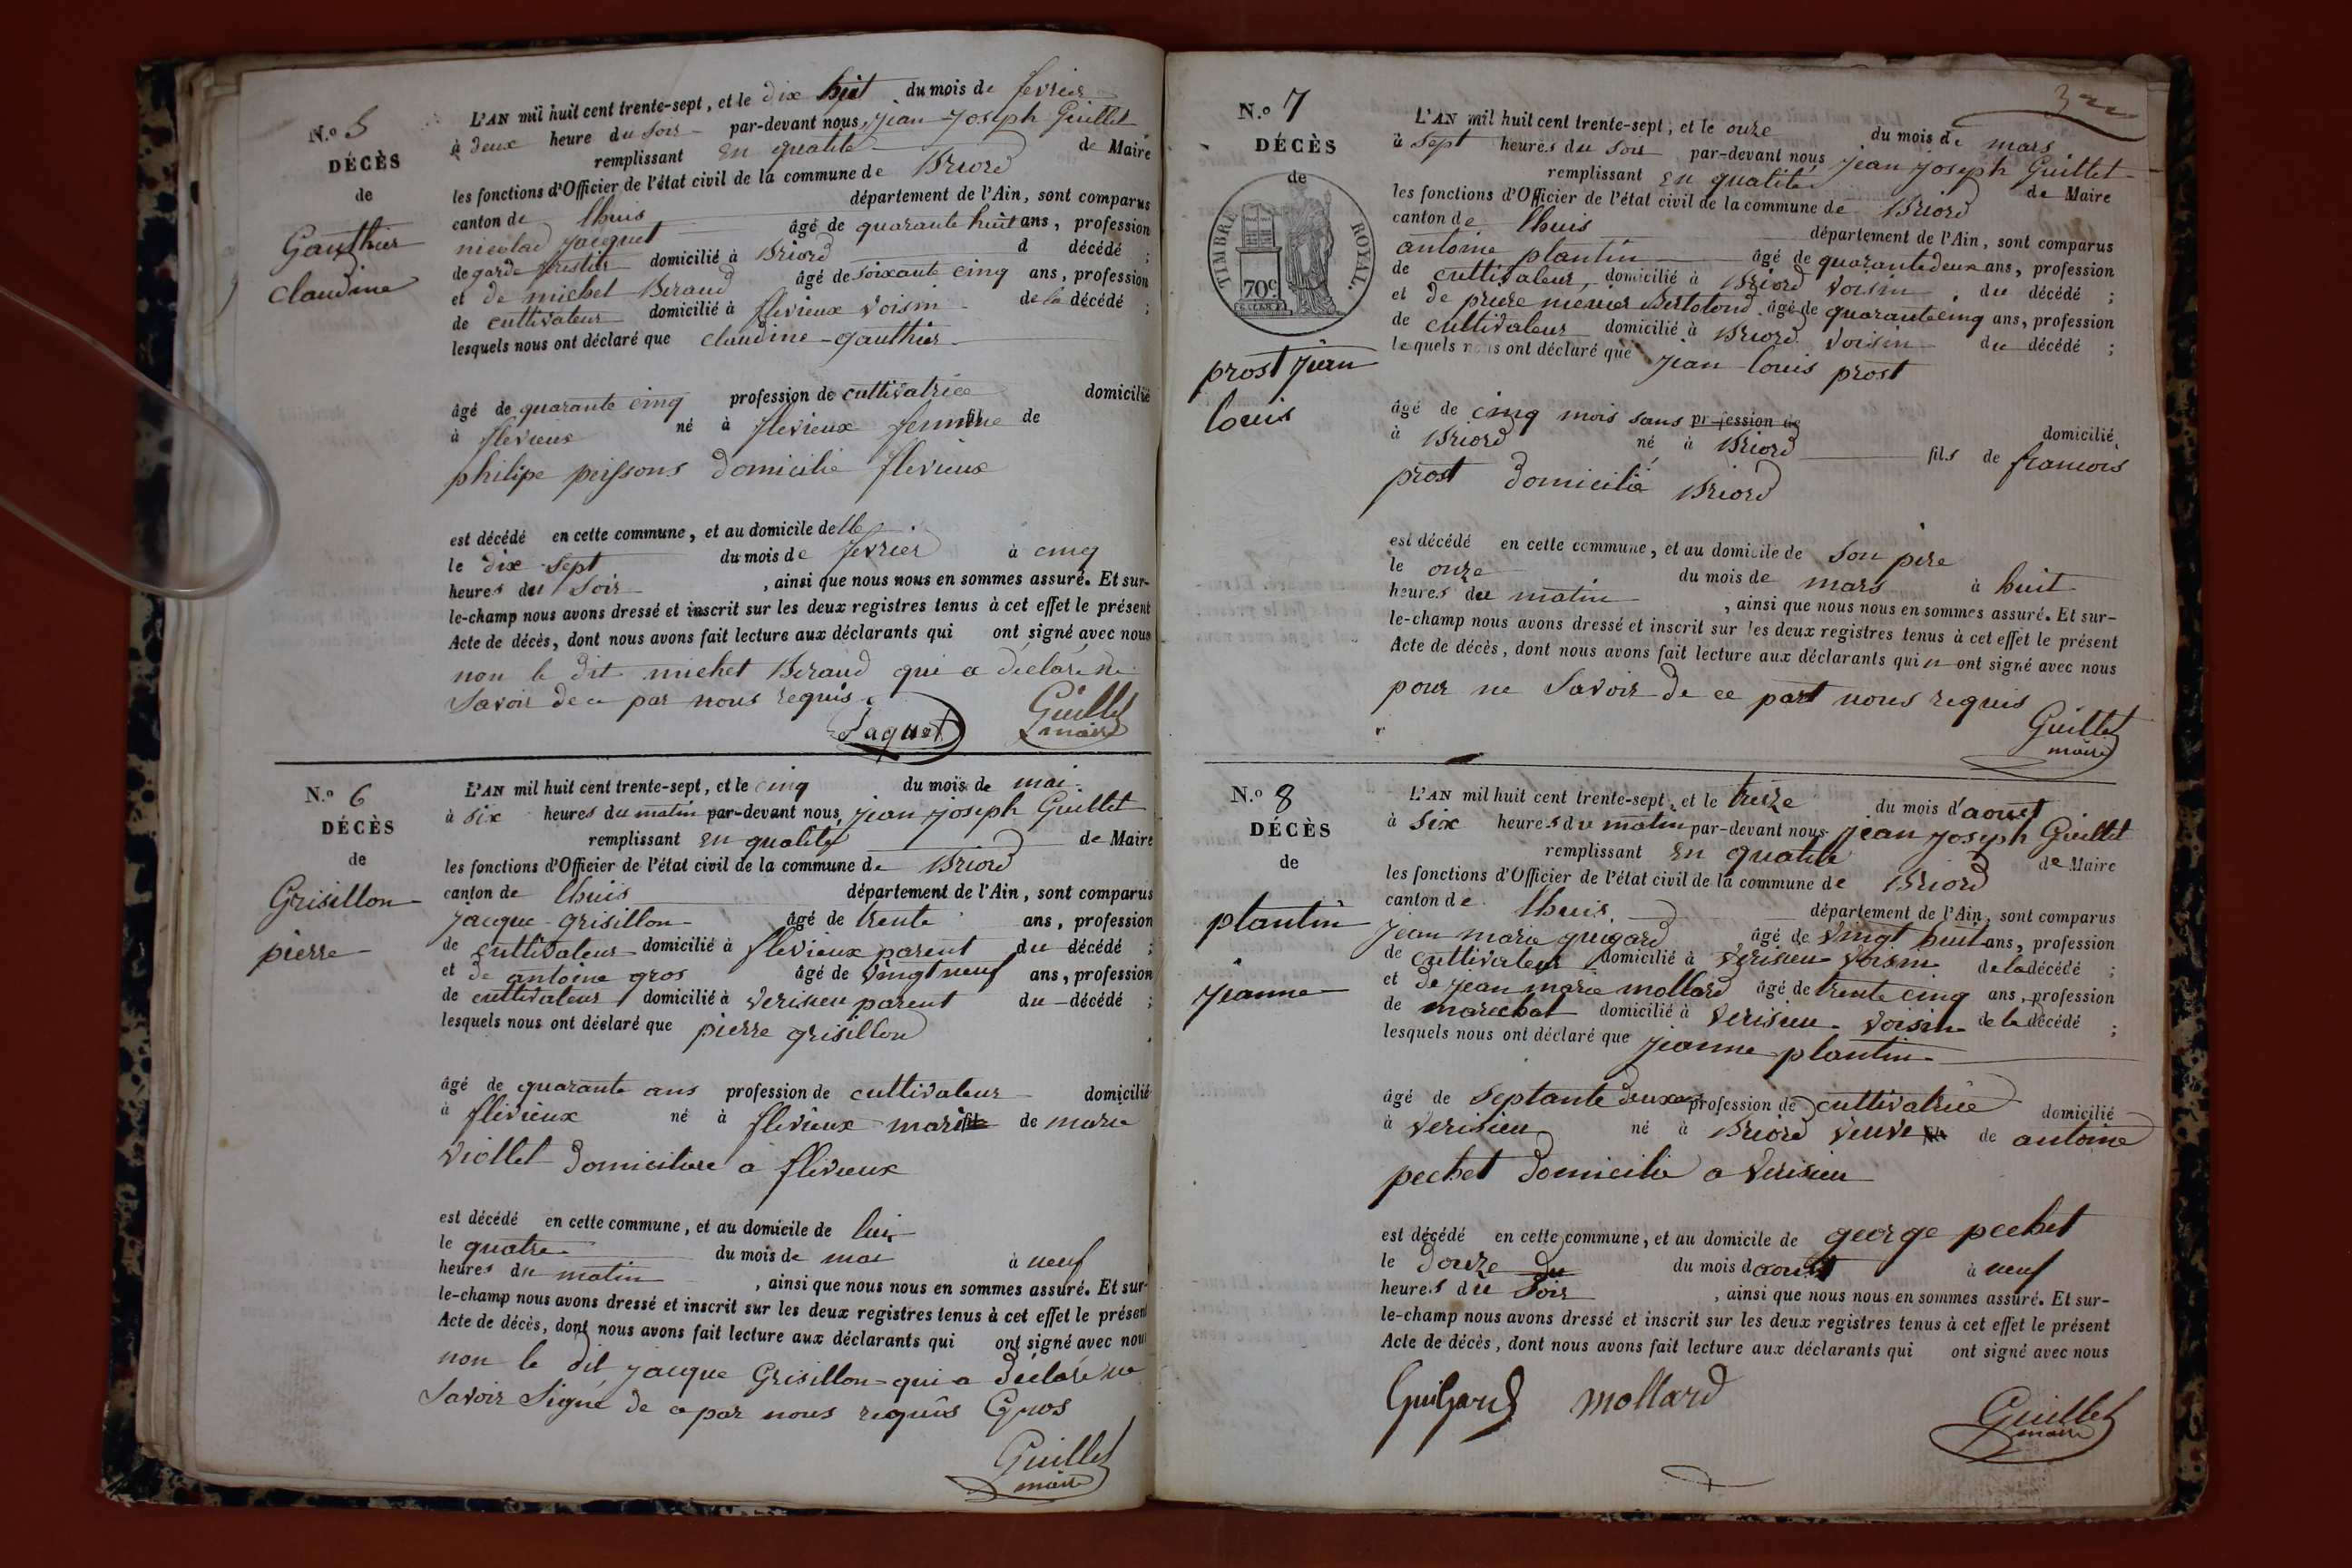 N.o 5
DÉCÈS
de
Gauthier
claudine
L'AN mil huit cent trente-sept, et le dix huit du mois de fevrier
à deux heure du soir par-devant nous, jean joseph Guillet
remplissant en qualité de Maire
les fonctions d'Officier de l'état civil de la commune de Briord
canton de lhuis département de l'Ain, sont comparus
nicolas jacquet âgé de quarante huit ans, profession
de garde forestier domicilié à Briord d décédé ;
et de michel Beraud âgé de soixante cinq ans, profession
de cultivateur domicilié à flevieux voisin de la décédé ;
lesquels nous ont déclaré que claudine gauthier
âgé de quarante cinq profession de cultivatrice domicilié
à flevieux né à flevieux femme de
philipe peissons domicilié flevieux
est décédé en cette commune, et au domicile delle
le dix sept du mois de fevrier à cinq
heures du soir , ainsi que nous nous en sommes assuré. Et sur-
le-champ nous avons dressé et inscrit sur les deux registres tenus à cet effet le présent
Acte de décès, dont nous avons fait lecture aux déclarants qui ont signé avec nous
non le dit michel Beraud qui a déclaré ne
savoir de ce par nous requis
Jaquet Guillet
maire
N.o 6
DÉCÈS
de
Grisillon
pierre
L'AN mil huit cent trente-sept, et le cinq du mois de mai
à six heures du matin par-devant nous, jean joseph Guillet
remplissant en qualité de Maire
les fonctions d'Officier de l'état civil de la commune de Briord
canton de lhuis département de l'Ain, sont comparus
jacque grisillon âgé de trente ans, profession
de cultivateur domicilié à flevieux parent du décédé ;
et de antoine gros âgé de vingt neuf ans, profession
de cultivateur domicilié à verisieu parent du décédé ;
lesquels nous ont déclaré que pierre grisillon
âgé de quarante ans profession de cultivateur domicilié
à flevieux né à flevieux mari fils de marie
viollet domiciliee a flevieux
est décédé en cette commune, et au domicile de lui
le quatre du mois de mai à neuf
heures du matin , ainsi que nous nous en sommes assuré. Et sur-
le-champ nous avons dressé et inscrit sur les deux registres tenus à cet effet le présent
Acte de décès, dont nous avons fait lecture aux déclarants qui ont signé avec nous
non le dit jacque Grisillon qui a déclaré ne
savoir signé de ce par nous requis Gros
Guillet
maire
N.o 7
DÉCÈS
de
TIMBRE ROYAL.
70c
prost jean
louis
L'AN mil huit cent trente-sept, et le onze du mois de mars
à sept heures du soir par-devant nous jean joseph Guillet
remplissant en qualité de Maire
les fonctions d'Officier de l'état civil de la commune de Briord
canton de lhuis département de l'Ain, sont comparus
antoine plantin âgé de quarante deux ans, profession
de cultivateur, domicilié à Briord voisin du décédé ;
et de âgé de quarante cinq ans, profession
de cultivateur domicilié à Briord voisin du décédé ;
lesquels nous ont déclaré que jean louis prost
âgé de cinq mois sans profession de domicilié
à Briord né à Briord fils de francois
prost domicilié Briord
est décédé en cette commune, et au domicile de son pere
le onze du mois de mars à huit
heures du matin , ainsi que nous nous en sommes assuré. Et sur-
le-champ nous avons dressé et inscrit sur les deux registres tenus à cet effet le présent
Acte de décès, dont nous avons fait lecture aux déclarants qui n ont signé avec nous
pour ne savoir de ce part nous requis
Guillet
maire
N.o 8
DÉCÈS
de
plantin
jeanne
L'AN mil huit cent trente-sept, et le treize du mois d'aoust
à six heures du matin par-devant nous jean joseph Guillet
remplissant en qualité de Maire
les fonctions d'Officier de l'état civil de la commune de Briord
canton de lhuis département de l'Ain, sont comparus
jean marie guigard âgé de vingt huit ans, profession
de cultivateur domicilié à verisieu voisin de la décédé ;
et de jean marie mollard âgé de trente cinq ans, profession
de marechal domicilié à verisieu voisin de la décédé ;
lesquels nous ont déclaré que jeanne plantin
âgé de septante deux ans profession de cultivatrice domicilié
à verisieu né à Briord veuve de antoine
pechet domicilié a verisieu
est décédé en cette commune, et au domicile de george pechet
le douze du du mois d aoust à neuf
heures du soir , ainsi que nous nous en sommes assuré. Et sur-
le-champ nous avons dressé et inscrit sur les deux registres tenus à cet effet le présent
Acte de décès, dont nous avons fait lecture aux déclarants qui ont signé avec nous
Guigard mollard Guillet
maire